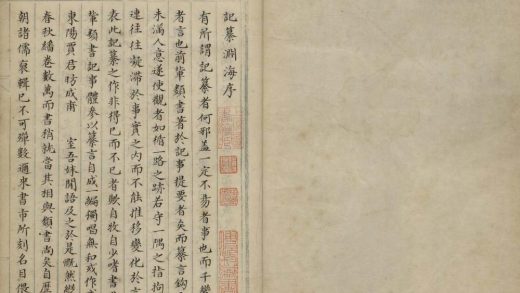 記纂淵海序
有所謂記纂者何邪蓋一定不易者事也而千變
者言也前輩類書著於記事提要者矣而纂言鈎
未滿人意遂使觀者如循一路之跡若守一隅之指拘
連往往凝滯於事實之内而不能推移變化於言
表此記纂之作非得已而不已者歟自牧自少嗜書
輩類書記事體參以纂言自成一編獨唱無和戎作
東陽賈君昉咸甫 室吾妹閒語及之於是慨然
春秋繙卷數萬而書稍就當其相與類書尚矣自
朝諸儒裒輯已不可殫數邇來書市所刻名目